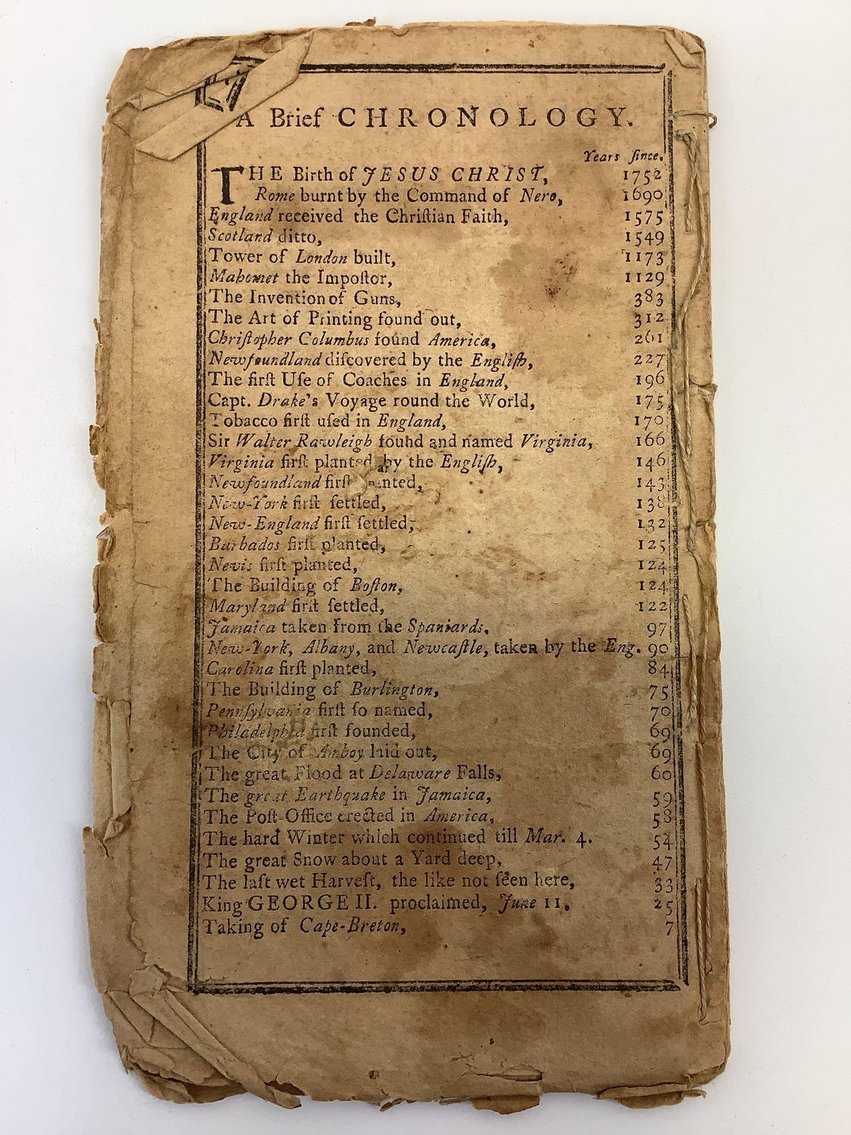 A Brief CHRONOLOGY.
Years ſince.
THE Birth of JESUS CHRIST, 1752
Rome burnt by the Command of Nero, 1690
England received the Chriſtian Faith, 1575
Scotland ditto, 1549
Tower of London built, 1173
Mahomet the Impoſtor, 1129
The Invention of Guns, 383
The Art of Printing found out, 312
Chriſtopher Columbus found America, 261
Newfoundland diſcovered by the Engliſh, 227
The firſt Uſe of Coaches in England, 196
Capt. Drake's Voyage round the World, 175
Tobacco firſt uſed in England, 170
Sir Walter Rawleigh found and named Virginia, 166
Virginia firſt planted by the Engliſh, 146
Newfoundland firſt planted, 143
New-York firſt ſettled, 138
New-England firſt ſettled, 132
Barbados firſt planted, 125
Nevis firſt planted, 124
The Building of Boſton, 124
Maryland firſt ſettled, 122
Jamaica taken from the Spaniards. 97
New-York, Albany, and Newcaſtle, taken by the Eng. 90
Carolina firſt planted, 84
The Building of Burlington, 75
Pennſylvania firſt ſo named, 70
Philadelphia firſt founded, 69
The City of Amboy laid out, 69
The great Flood at Delaware Falls, 60
The great Earthquake in Jamaica, 59
The Poſt-Office erected in America, 58
The hard Winter which continued till Mar. 4. 54
The great Snow about a Yard deep, 47
The laſt wet Harveſt, the like not ſeen here, 33
King GEORGE II. proclaimed, June 11, 25
Taking of Cape-Breton, 7